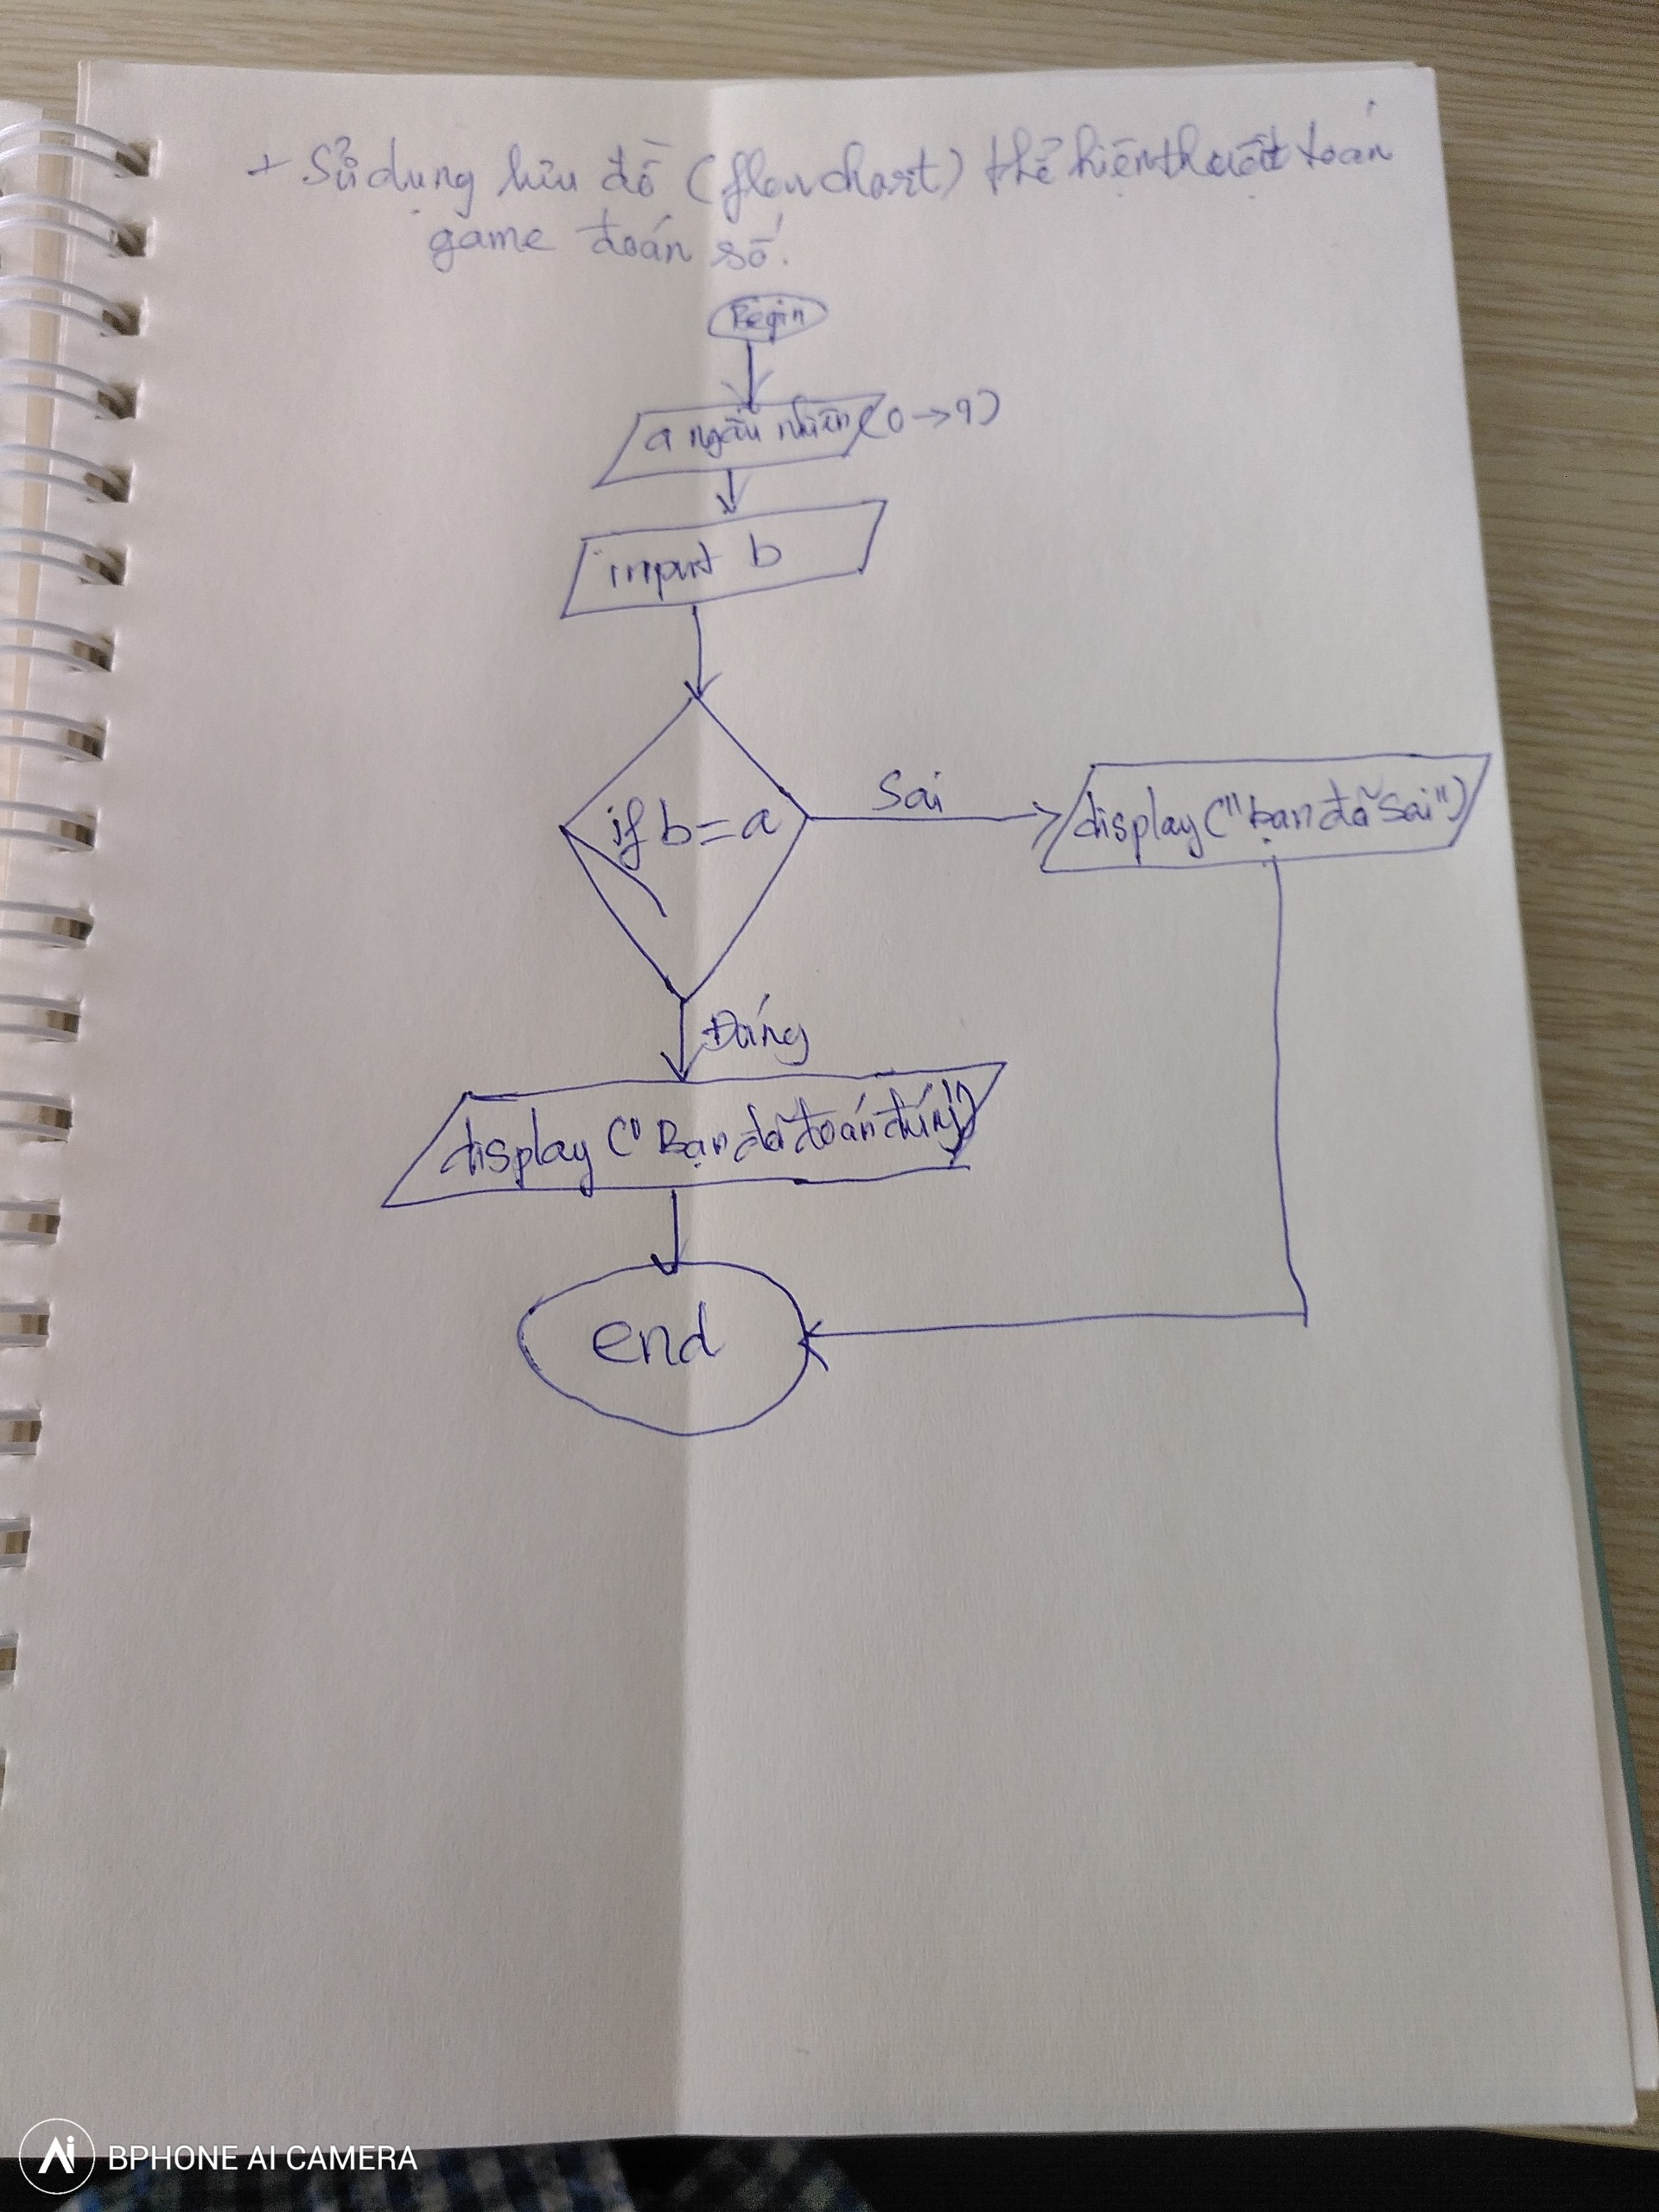 + Sử dụng lưu đồ (flowchart) thể hiện thuật toán
game đoán số.
Begin
a ngẫu nhiên (0 → 9)
input b
if b = a
Sai
display ("bạn đã sai")
Đúng
display ("Bạn đã đoán đúng")
end
Ai BPHONE AI CAMERA